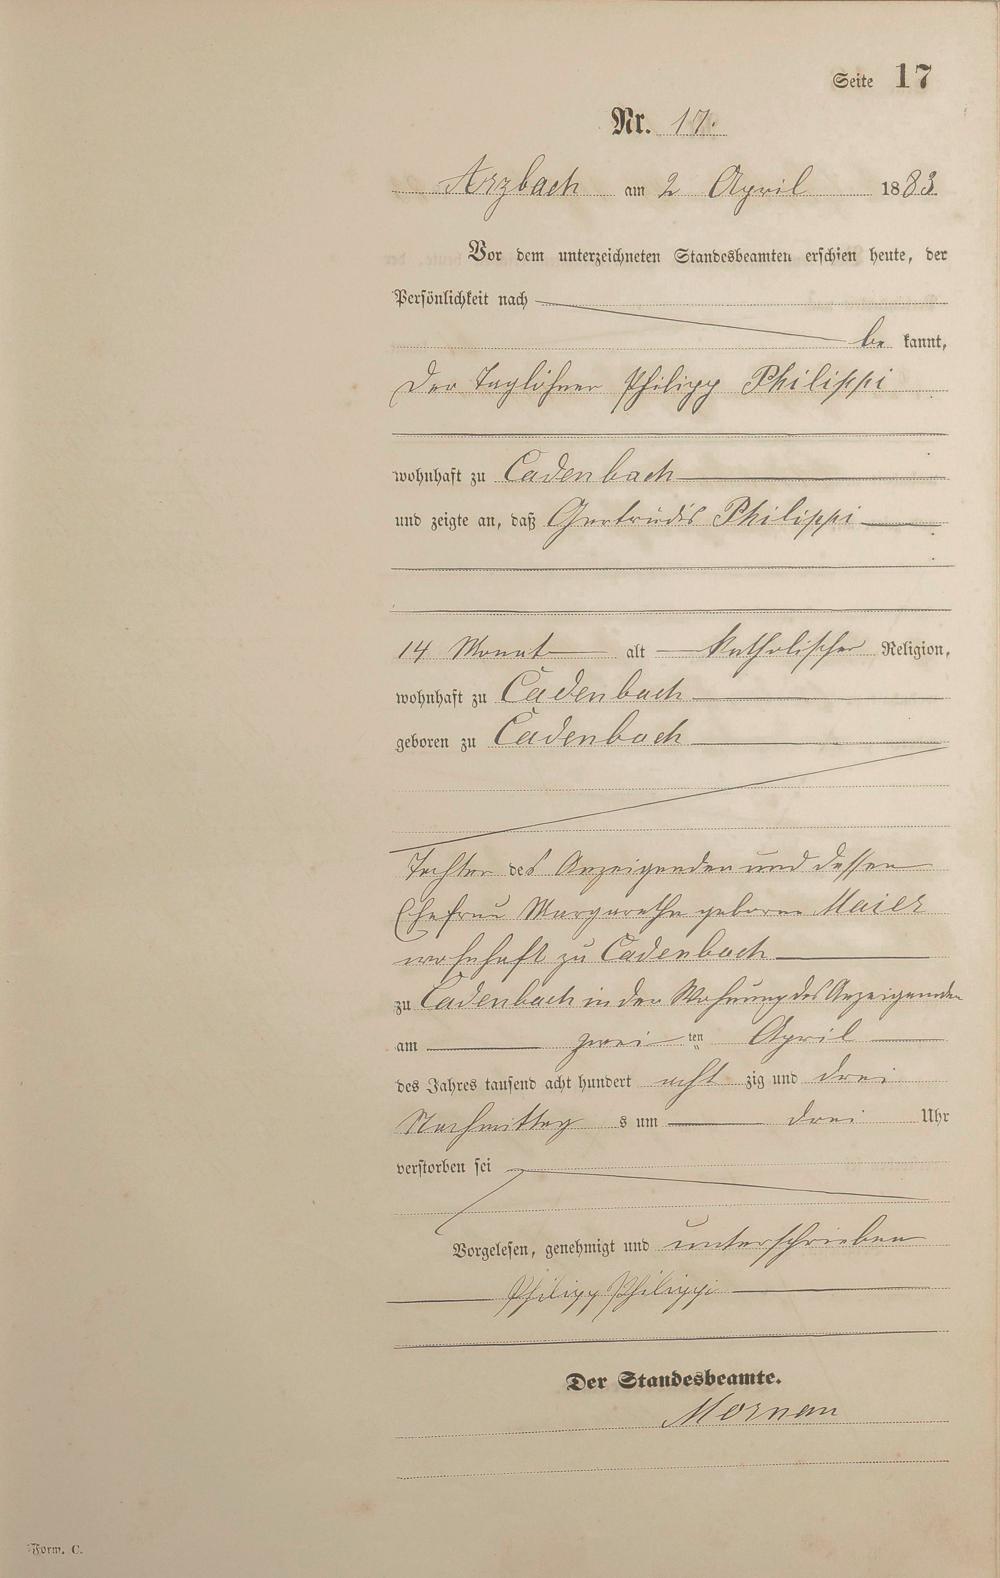 Seite 17
Nr. 17.
Arzbach am 2 April 1883
Vor dem unterzeichneten Standesbeamten erschien heute, der
Persönlichkeit nach
be kannt,
Der Taglöhner Philipp Philippi
wohnhaft zu Cadenbach
und zeigte an, daß Gertrudis Philippi
14 Monat alt katholischer Religion,
wohnhaft zu Cadenbach
geboren zu Cadenbach
Tochter des Anzeigenden und dessen
Ehefrau Margarethe geborne Maier
wohnhaft zu Cadenbach
zu Cadenbach in der Wohnung des Anzeigenden
am zwei ten April
des Jahres tausend acht hundert acht zig und drei
Nachmittag s um drei Uhr
verstorben sei
Vorgelesen, genehmigt und unterschrieben
Philipp Philippi
Der Standesbeamte.
Form. C.